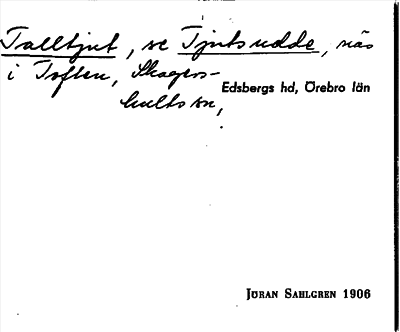 Talltjut, se Tjutsudde, näs
i Toften, Skagers-
hults sn,
Edsbergs hd, Örebro län
JÖRAN SAHLGREN 1906